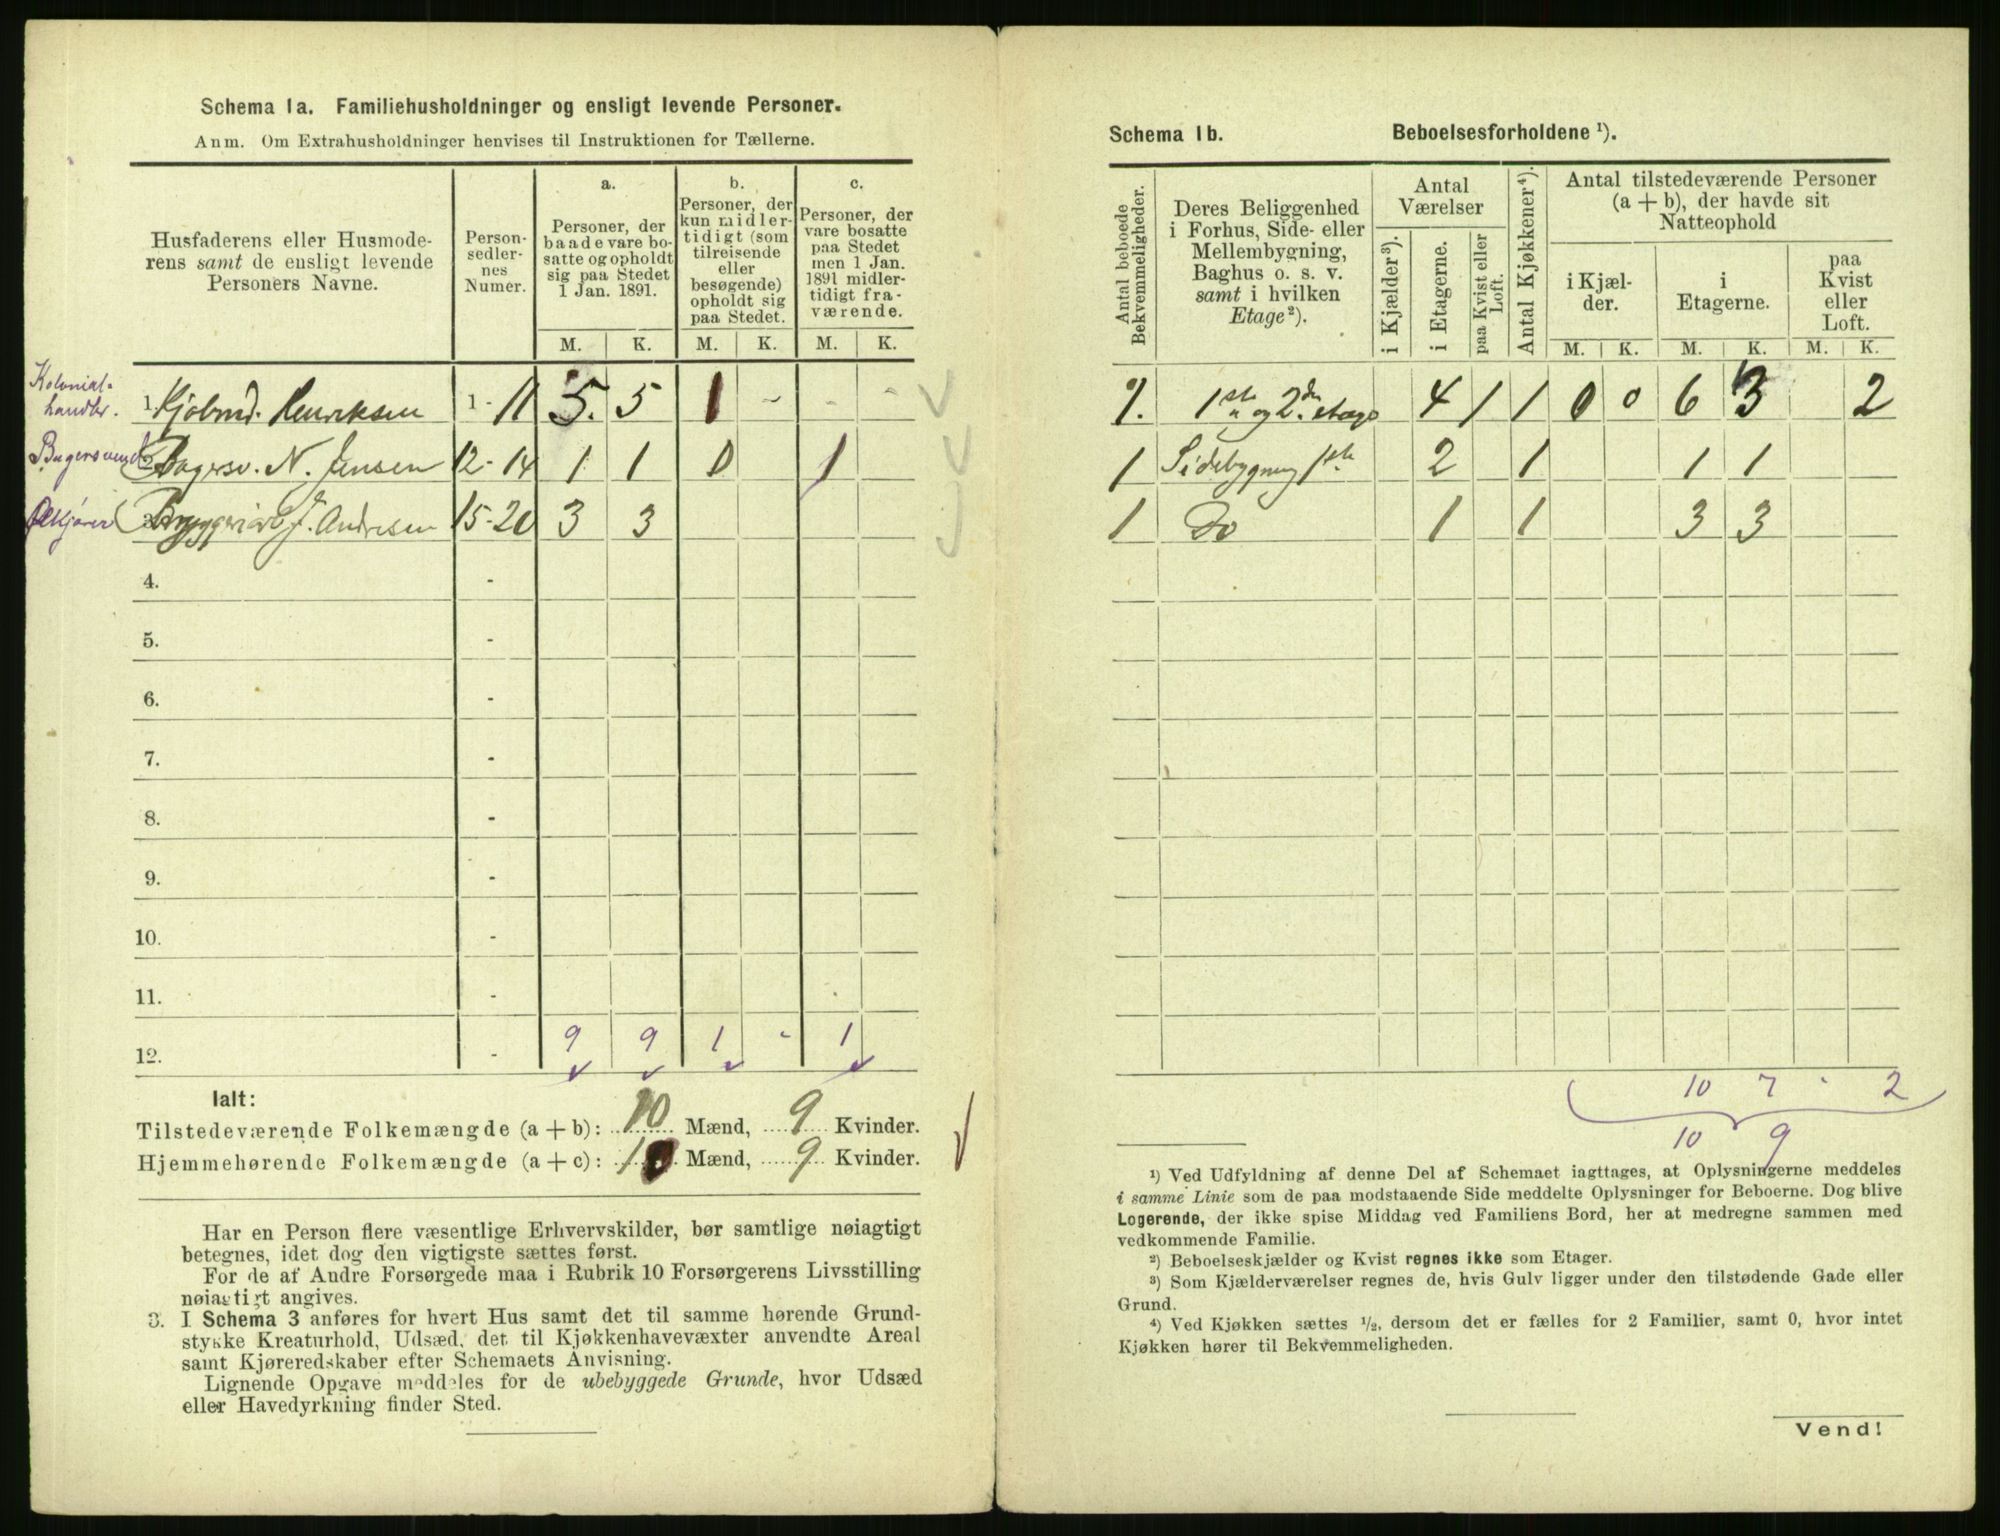 Schema 1a. Familiehusholdninger og ensligt levende Personer.
Anm. Om Extrahusholdninger henvises til Instruktionen for Tællerne.
Husfaderens eller Husmode-
rens samt de ensligt levende
Personers Navne.
Person-
sedler-
nes
Numer.
a.
Personer, der
baade vare bo-
satte og opholdt
sig paa Stedet
1 Jan. 1891.
b.
Personer, der
kun midler-
tidigt (som
tilreisende
eller
besøgende)
opholdt sig
paa Stedet.
c.
Personer, der
vare bosatte
paa Stedet
men 1 Jan.
1891 midler-
tidigt fra-
værende.
M. K. M. K. M. K.
Kolonial-
handler.
1. Kjøbmd. Henriksen 1 - 11 5. 5 1 - - -
Bagersvend
2. Bagersv. N. Jensen 12 - 14 1 1 0 1
Ølkjører
3. J. Andresen 15 - 20 3 3
4. -
5. -
6. -
7. -
8. -
9. -
10. -
11. -
12. - 9 9 1 - 1
Ialt:
Tilstedeværende Folkemængde (a + b): 10 Mænd, 9 Kvinder.
Hjemmehørende Folkemængde (a + c): 10 Mænd, 9 Kvinder.
Har en Person flere væsentlige Erhvervskilder, bør samtlige nøiagtigt
betegnes, idet dog den vigtigste sættes først.
For de af Andre Forsørgede maa i Rubrik 10 Forsørgerens Livsstilling
nøiagtigt angives.
3. I Schema 3 anføres for hvert Hus samt det til samme hørende Grund-
stykke Kreaturhold, Udsæd, det til Kjøkkenhavevæxter anvendte Areal
samt Kjøreredskaber efter Schemaets Anvisning.
Lignende Opgave meddeles for de ubebyggede Grunde, hvor Udsæd
eller Havedyrkning finder Sted.
Schema 1b. Beboelsesforholdene ¹).
Antal beboede
Bekvemmeligheder.
Deres Beliggenhed
i Forhus, Side- eller
Mellembygning,
Baghus o. s. v.
samt i hvilken
Etage²).
Antal
Værelser
i Kjælder³).
i Etagerne.
paa Kvist eller
Loft.
Antal Kjøkkener⁴).
Antal tilstedeværende Personer
(a + b), der havde sit
Natteophold
i Kjæl-
der.
i
Etagerne.
paa
Kvist
eller
Loft.
M. K. M. K. M. K.
1. 1ste og 2den etage 4 1 1 0 0 6 3 2
1 Sidebygning 1ste 2 1 1 1
1 Do 1 1 3 3
10 7 - 2
10 9
¹) Ved Udfyldning af denne Del af Schemaet iagttages, at Oplysningerne meddeles
i samme Linie som de paa modstaaende Side meddelte Oplysninger for Beboerne. Dog blive
Logerende, der ikke spise Middag ved Familiens Bord, her at medregne sammen med
vedkommende Familie.
²) Beboelseskjælder og Kvist regnes ikke som Etager.
³) Som Kjælderværelser regnes de, hvis Gulv ligger under den tilstødende Gade eller
Grund.
⁴) Ved Kjøkken sættes ½, dersom det er fælles for 2 Familier, samt 0, hvor intet
Kjøkken hører til Bekvemmeligheden.
Vend!